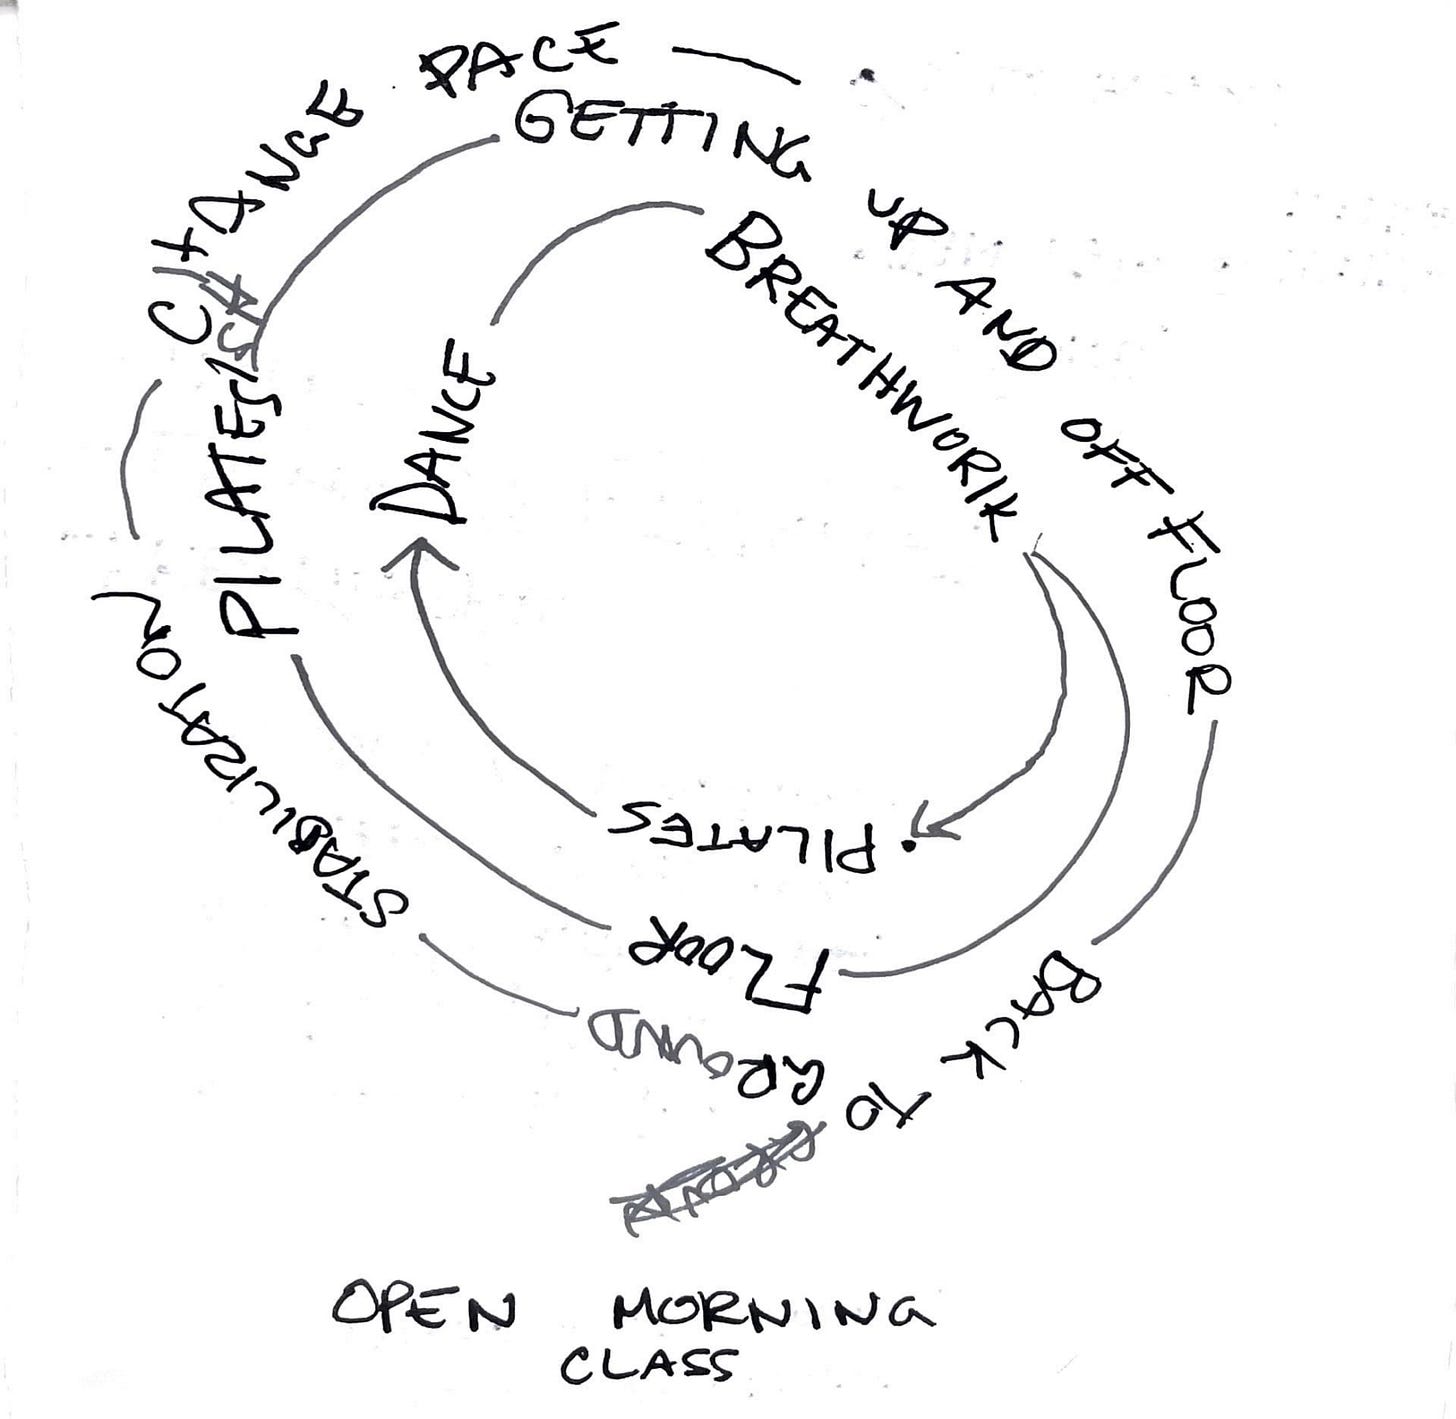 BREATHWORK
PILATES
DANCE
FLOOR
PILATES
GETTING UP AND OFF FLOOR
BACK TO GROUND
STABILIZATION
CHANGE PACE
OPEN MORNING
CLASS